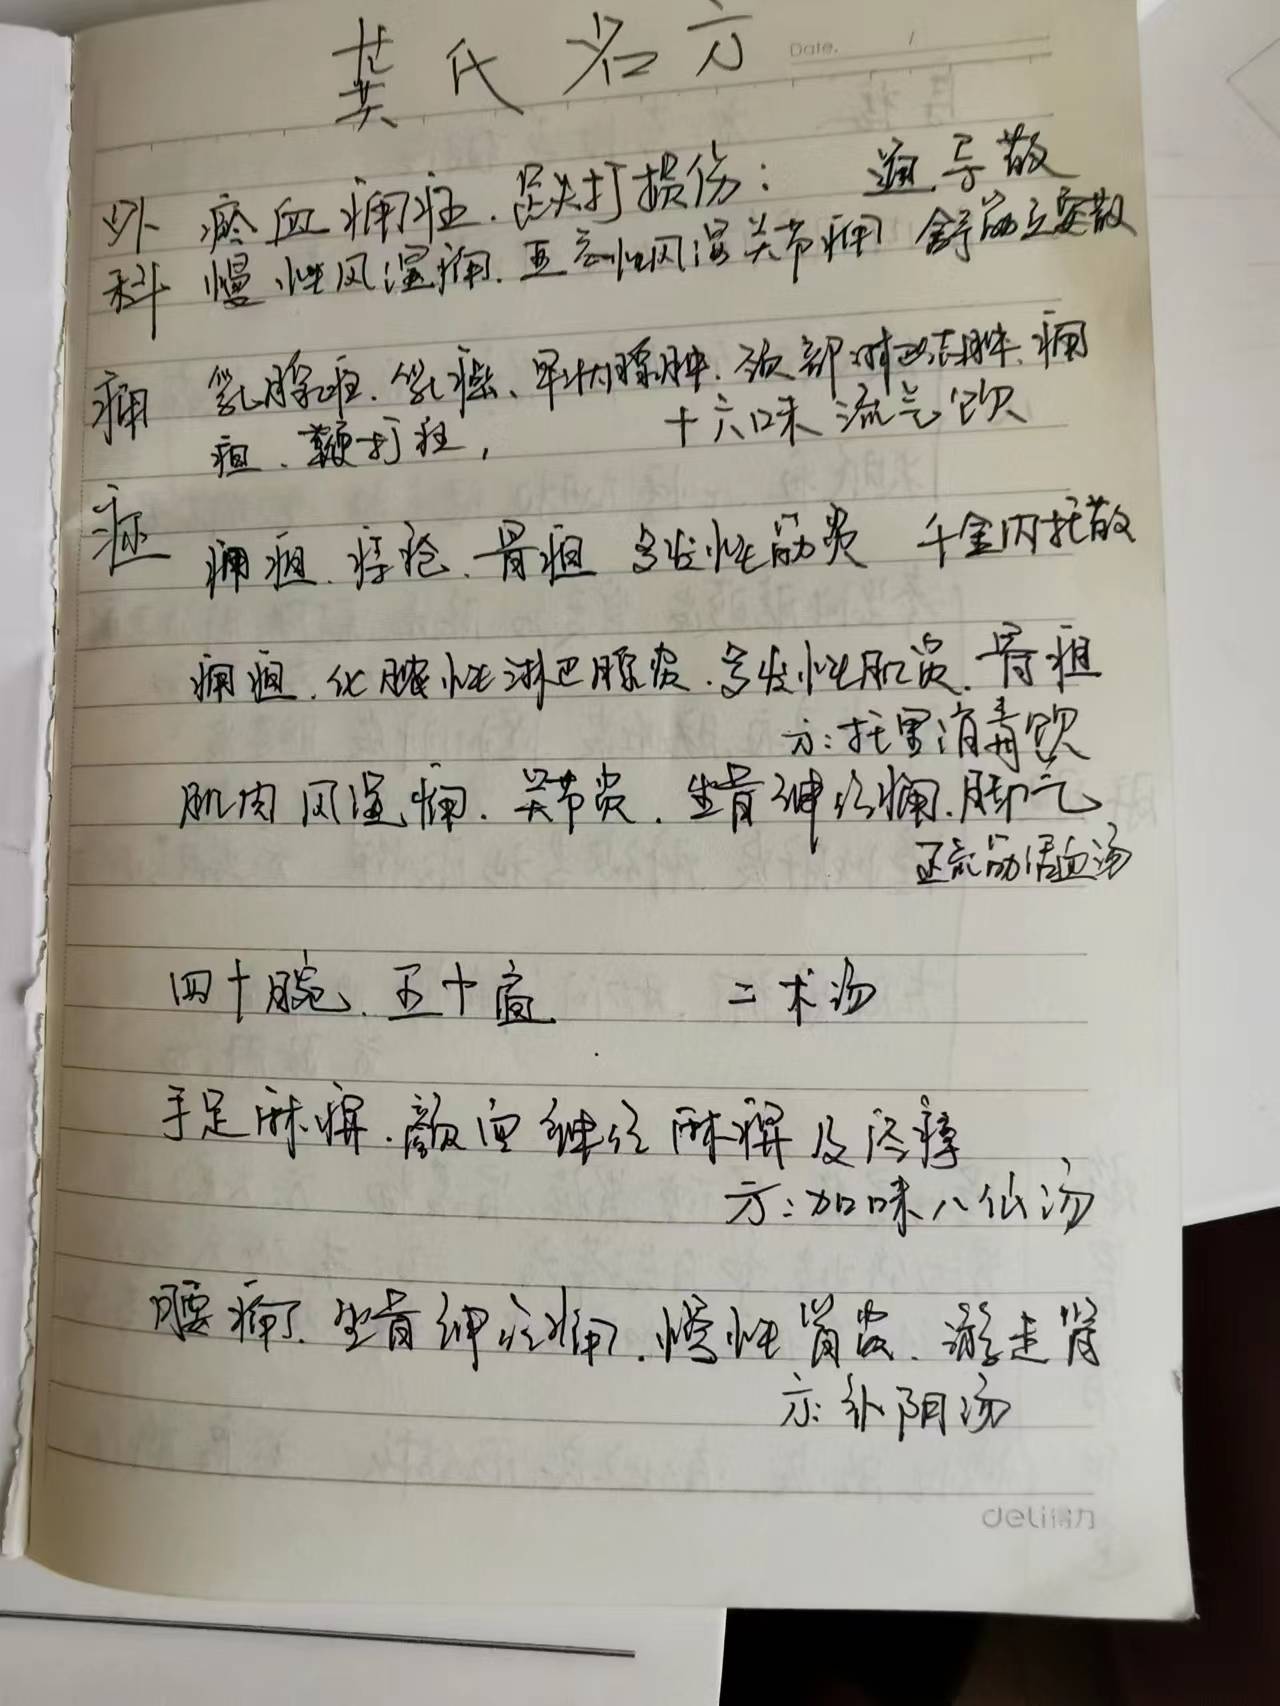 龚氏名方
Date. /
外 瘀血痛症.跌打损伤: 通导散
科 慢性风湿痛.亚急性风湿关节痛 舒筋立安散
痛 乳腺症.乳癌、睾状腺肿.颈部淋巴结肿.痈
疽.鞭打症, 十六味流气饮
症 痈疽.痔疮.骨疽 多发性筋炎 千金内托散
痈疽.化脓性淋巴腺炎.多发性肌炎.骨疽
方:托里消毒饮
肌肉风湿痛.关节炎.坐骨神经痛.脚气
疏筋活血汤
四十腕.五十肩 二术汤
手足麻痹.颜面神经麻痹及疼痛
方:加味八仙汤
腰痛.坐骨神经痛.慢性肾炎.游走肾
方:补阴汤
deli得力